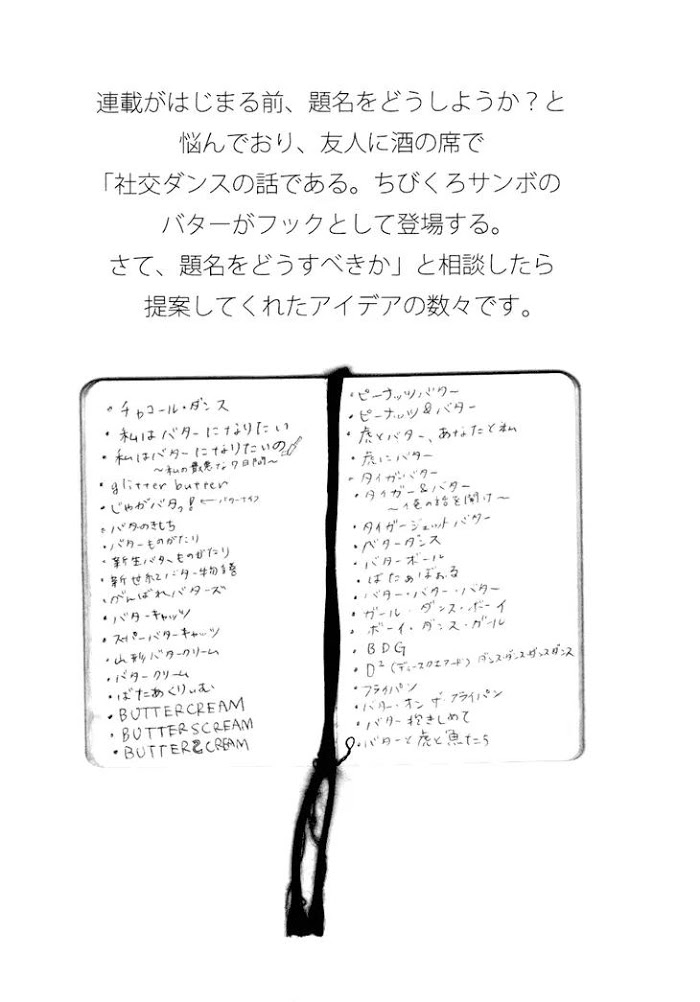 連載がはじまる前、題名をどうしようか？と
悩んでおり、友人に酒の席で
「社交ダンスの話である。ちびくろサンボの
バターがフックとして登場する。
さて、題名をどうすべきか」と相談したら
提案してくれたアイデアの数々です。
・チャコール・ダンス
・私はバターになりたい
・私はバターになりたいの
〜私の最悪な7日間〜
・glitter butter
・じゃがバタっ! ←バターナイフ
・バタのきもち
・バターものがたり
・新生バターものがたり
・新世紀バター物語
・がんばれバターズ
・バターキャッツ
・スーパーバターキャッツ
・山形バタークリーム
・バタークリーム
・ばたあくりぃむ
・BUTTERCREAM
・BUTTERSCREAM
・BUTTER CREAM
・ピーナッツバター
・ピーナッツ&バター
・虎とバター、あなたと私
・虎にバター
・タイガーバター
・タイガー&バター
〜俺の話を聞け〜
・タイガージェットバター
・ベターダンス
・バターボール
・ばたぁぼぉる
・バター・バター・バター
・ガール・ダンス・ボーイ
・ボーイ・ダンス・ガール
・BDG
・D² (ディースクエアード) ダンスダンスダンスダンス
・フライパン
・バター・オン ザ フライパン
・バター抱きしめて
・バターと虎と魚たち